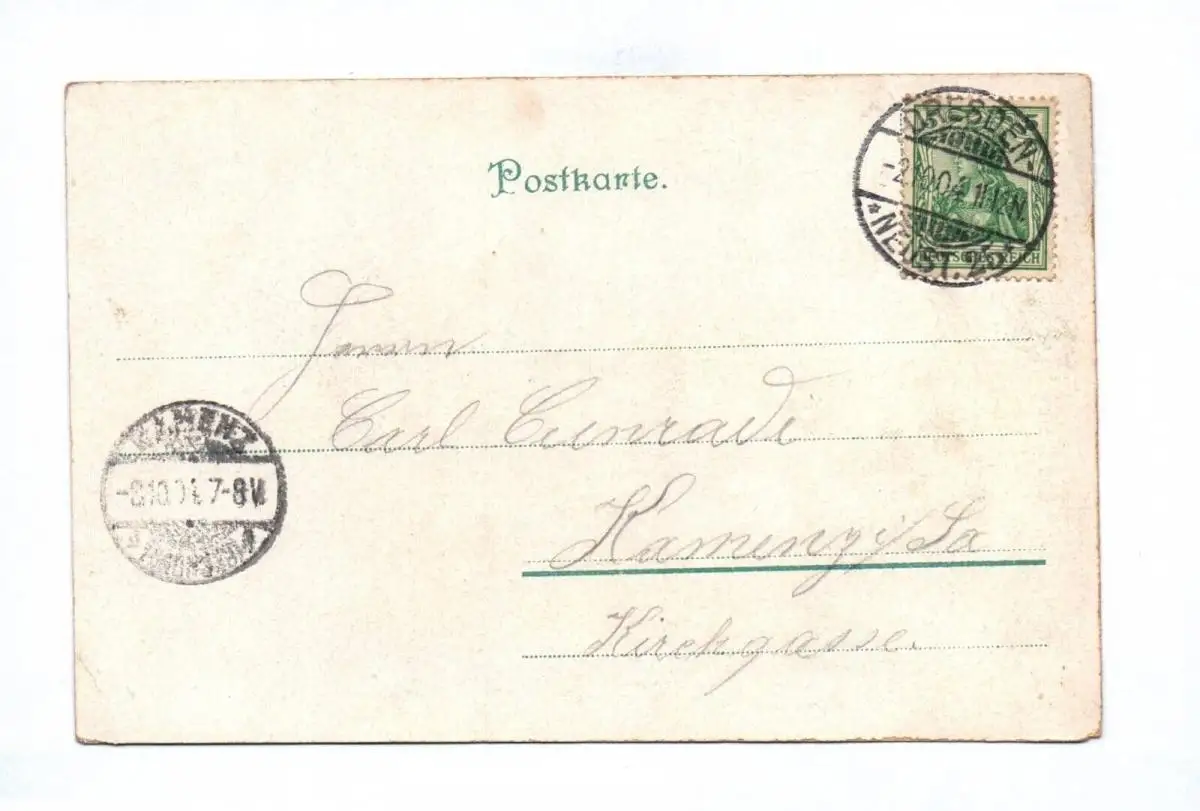 Postkarte.
DRESDEN-
*NEUST. 25*
DEUTSCHES REICH
Herrn
Carl Cunradi
Kamenz i/Sa
Kirchgasse.
KAMENZ
7-8V